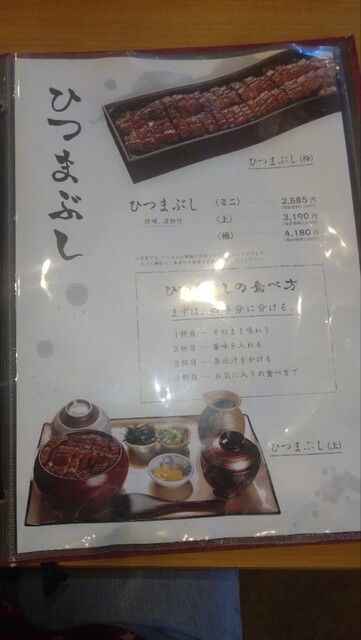 ひつまぶし
ひつまぶし(極)
ひつまぶし 〈ミニ〉 2,585円
〈上〉 3,190円
〈極〉 4,180円
の食べ方
まずは、四等分に分ける。
1杯目 ― そのまま味わう
2杯目 ― 薬味を入れる
3杯目 ― お出汁をかける
4杯目 ― お気に入りの食べ方で
ひつまぶし(上)